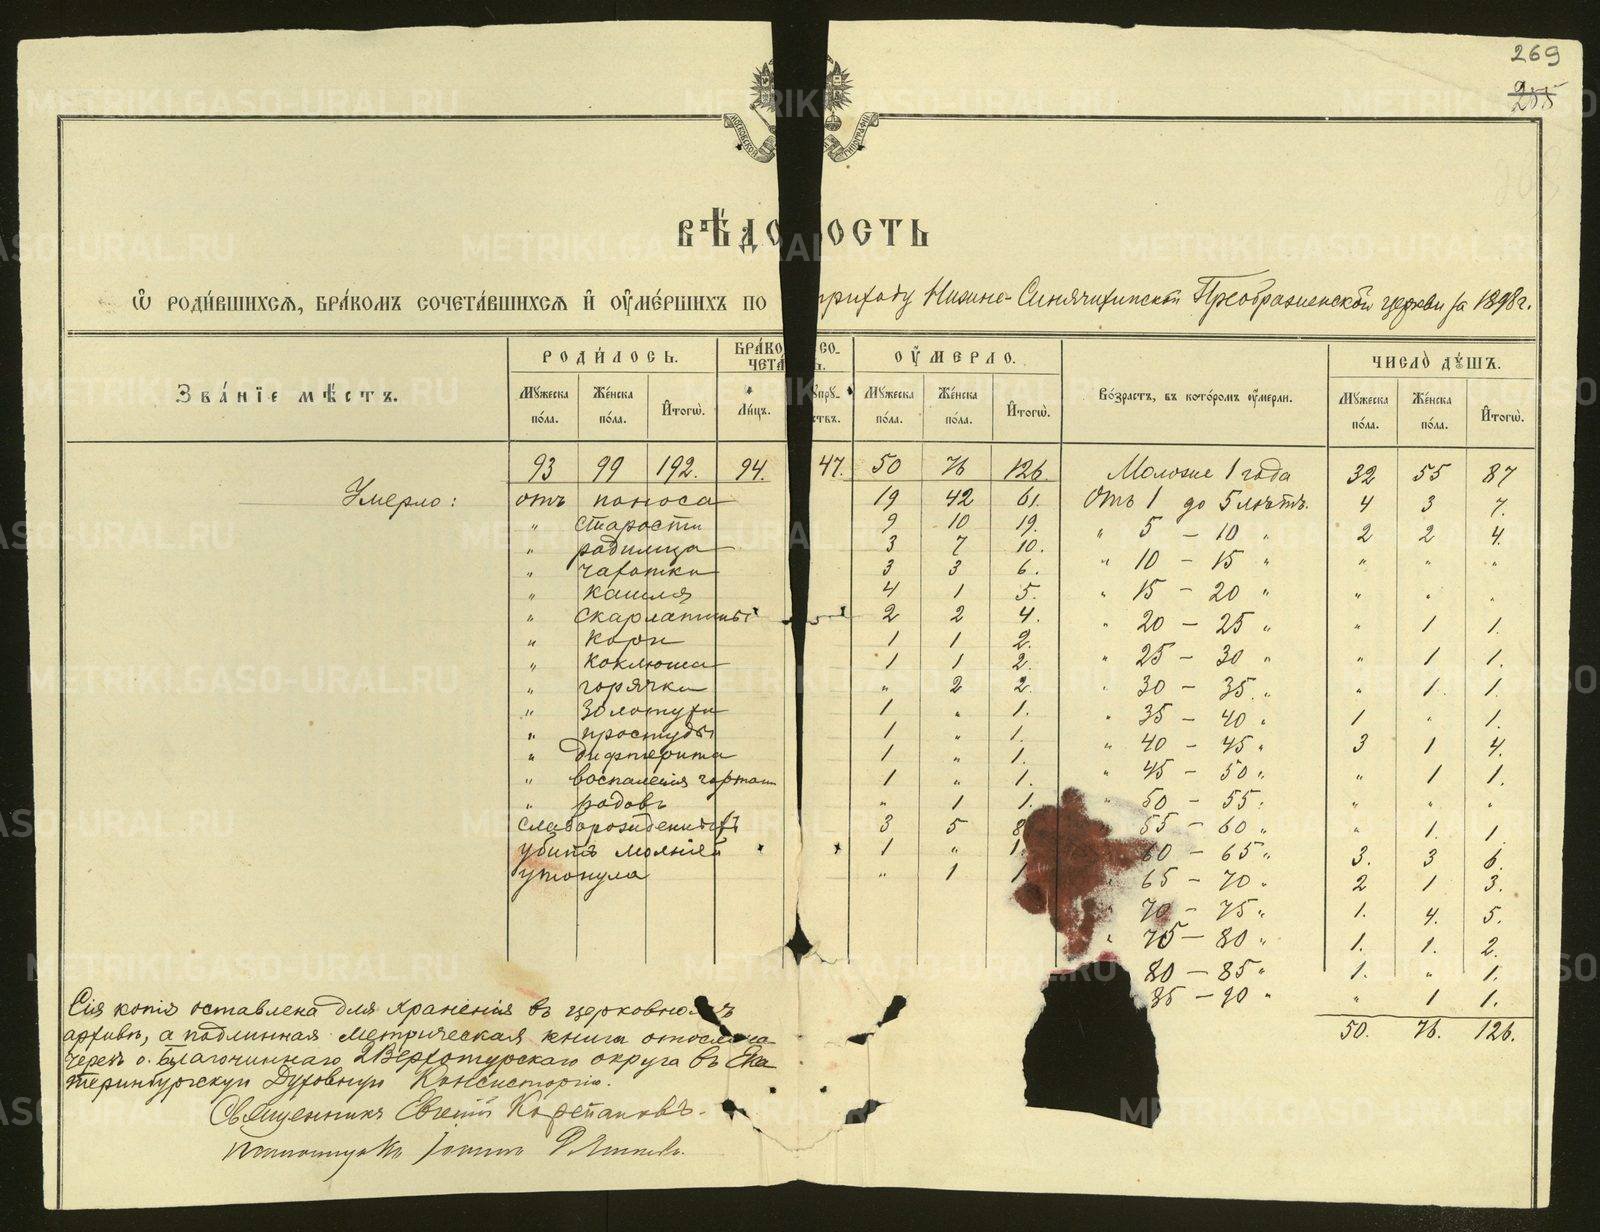 269
255
МОСКОВСКОЙ ТИПОГРАФІИ
ВѢДО ОСТЬ
Ѿ РОДИ́ВШИХСѦ, БРА́КОМЪ СОЧЕТА́ВШИХСѦ И҆ ОУ҆МЕ́РШИХЪ ПО приходу Нижне-Синячихинской Преображенской церкви за 1898 г.
ЗВА́НІЕ МѢ́СТЪ. РОДИ́ЛОСЬ. БРА́КО СО- ЧЕТА Ь. ОУ҆́МЕРЛО. Во́зрастъ, въ кото́ромъ оу҆́мерли. ЧИСЛО̀ ДꙊ́ШЪ.
Мꙋ́жеска по́ла. Же́нска по́ла. И҆тогѡ̀. Ли́цъ. упрꙋ- ствъ. Мꙋ́жеска по́ла. Же́нска по́ла. И҆тогѡ̀. Мꙋ́жеска по́ла. Же́нска по́ла. И҆тогѡ̀.
93 99 192. 94. 47. 50 76 126. Моложе 1 года 32 55 87
Умерло: отъ поноса 19 42 61. Отъ 1 до 5 лѣтъ. 4 3 7.
„ старости 9 10 19. „ 5 – 10 „ 2 2 4.
„ родимца 3 7 10. „ 10 – 15 „ „ „ „
„ чахотки 3 3 6. „ 15 – 20 „ „ „ „
„ кашля 4 1 5. „ 20 – 25 „ „ 1 1.
„ скарлатины 2 2 4. „ 25 – 30 „ „ 1 1.
„ кори 1 1 2. „ 30 – 35 „ „ 1 1.
„ коклюша 1 1 2. „ 35 – 40 „ 1 „ 1.
„ горячки „ 2 2. „ 40 – 45 „ 3 1 4.
„ золотухи 1 „ 1. „ 45 – 50 „ „ 1 1.
„ простуды 1 „ 1. „ 50 – 55 „ „ „ „
„ дифтерита 1 „ 1. 55 – 60 „ „ 1. 1
„ воспаленія гортан 1 „ 1. 60 – 65 „ 3. 3 6.
„ родовъ „ 1 1. 65 – 70 „ 2 1 3.
слаборожденности 3 5 8 70 – 75 „ 1. 4. 5.
убитъ молніей 1 „ 1. „ 75 – 80 „ 1. 1. 2.
утонула „ 1 1 80 – 85 „ 1. „ 1.
85 – 90 „ „ 1 1.
50. 76. 126.
Сія копія оставлена для храненія въ церковномъ
архивѣ, а подлинная метрическая книга отослана
черезъ о. Благочиннаго 2 Верхотурскаго округа въ Ека
теринбургскую Духовную Консисторію.
Священникъ Евгеній Корепановъ.
псаломщикъ Іоаннъ
METRIKI.GASO-URAL.RU